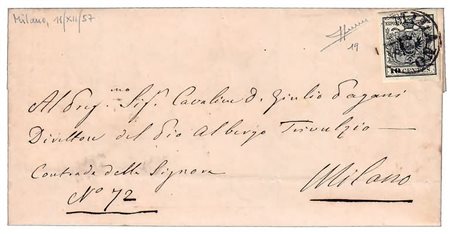 Milano, 11/XII/57
19
10 CENTES
Al Preg.mo Sig. Cavaliere D. Giulio Pagani
Direttore del Pio Albergo Trivulzio
Contrada della Signora
No 72
Milano